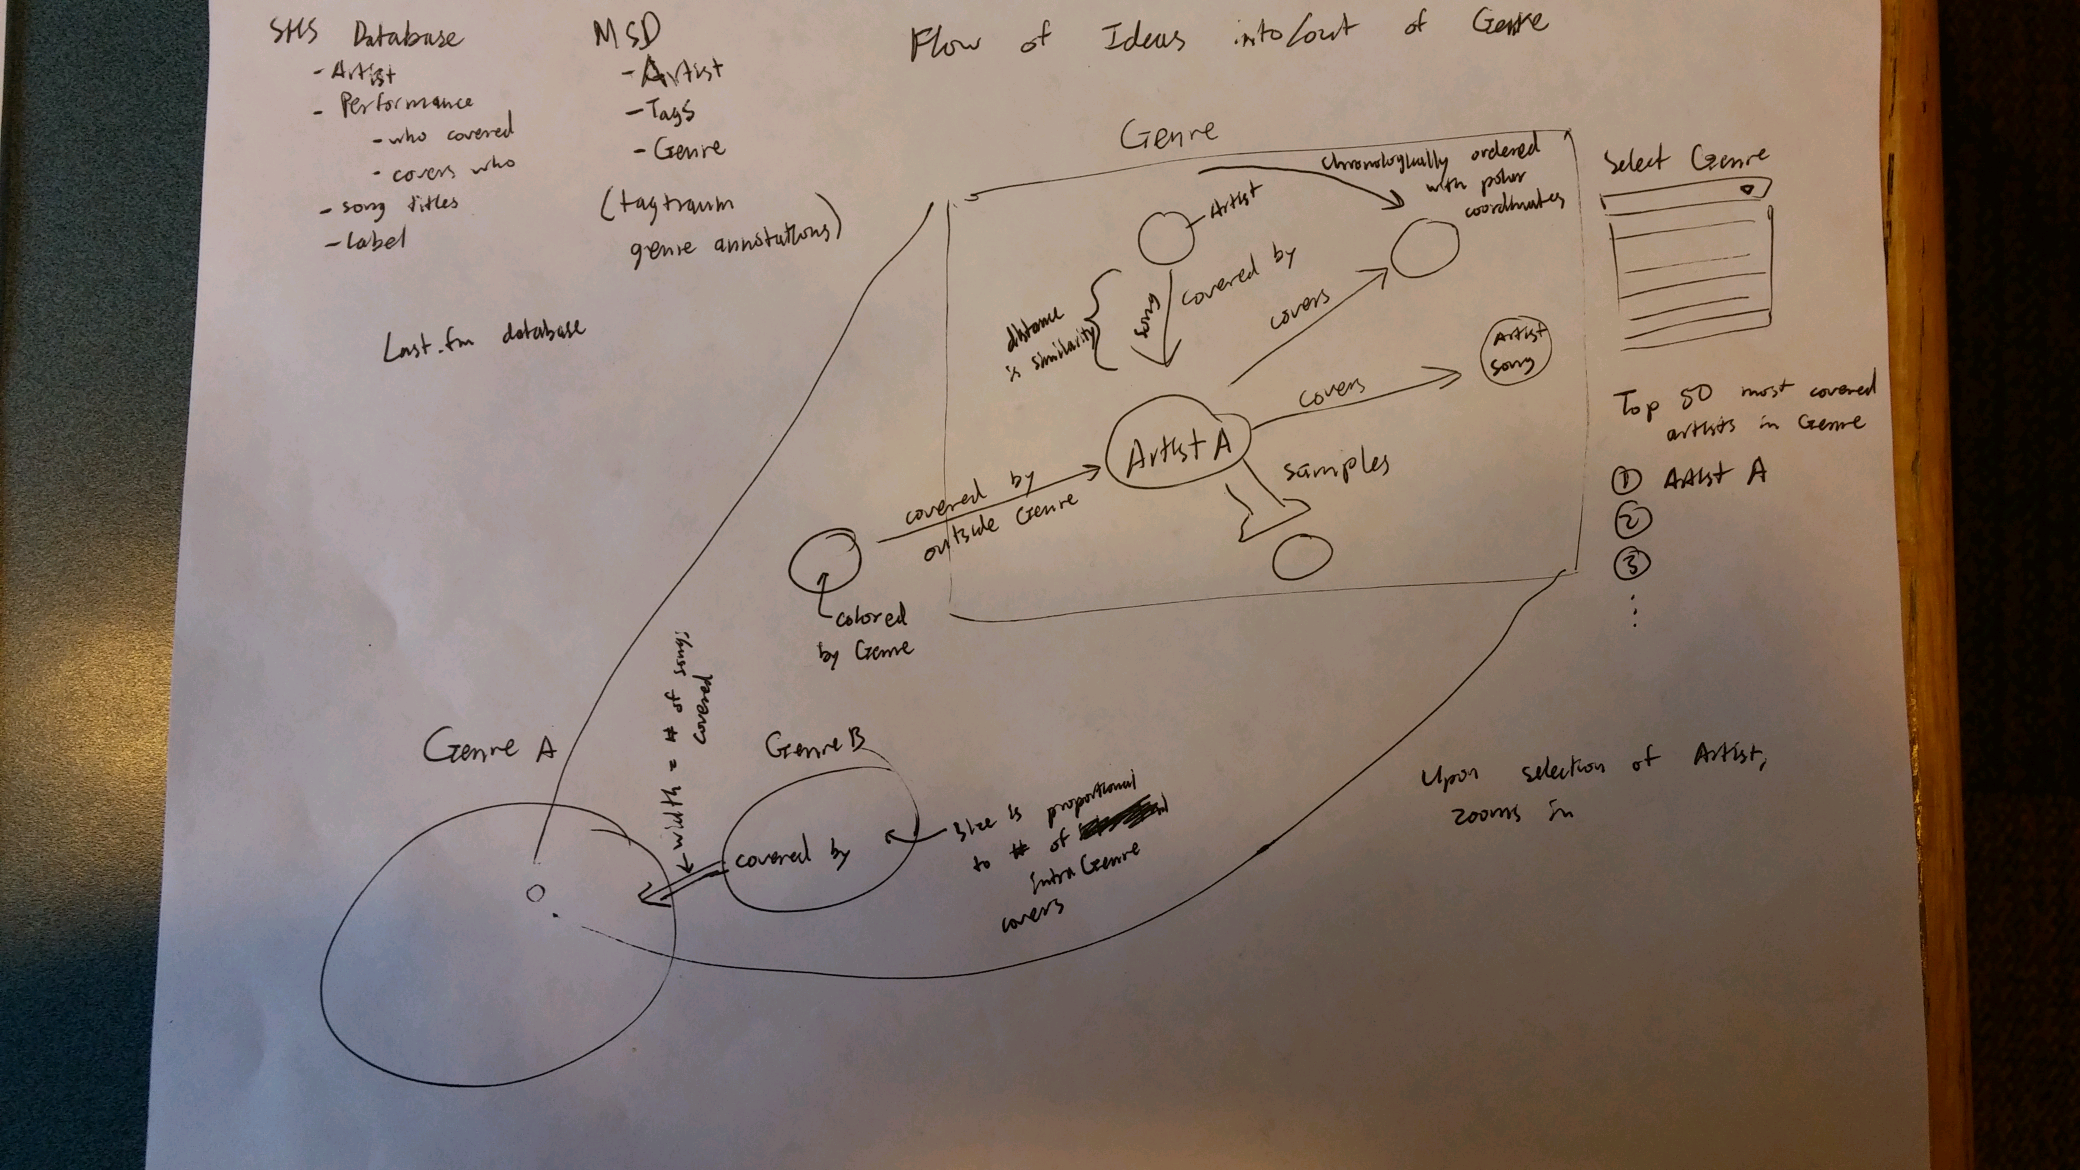 SHS Database
- Artist
- Performance
- who covered
- covers who
- song titles
- Label
MSD
- Artist
- Tags
- Genre
(tagtraum
genre annotations)
Last.fm database
Flow of Ideas into/out of Genre
Genre
chronologically ordered
with polar
coordinates
Artist
distance
is similarity
song
covered by
covers
Artist
song
covers
Artist A
samples
covered by
outside Genre
colored
by Genre
Select Genre
Top 50 most covered
artists in Genre
① Artist A
②
③
Genre A
width = # of songs
covered
Genre B
covered by
Size is proportional
to # of
intra Genre
covers
Upon selection of Artist,
zooms in